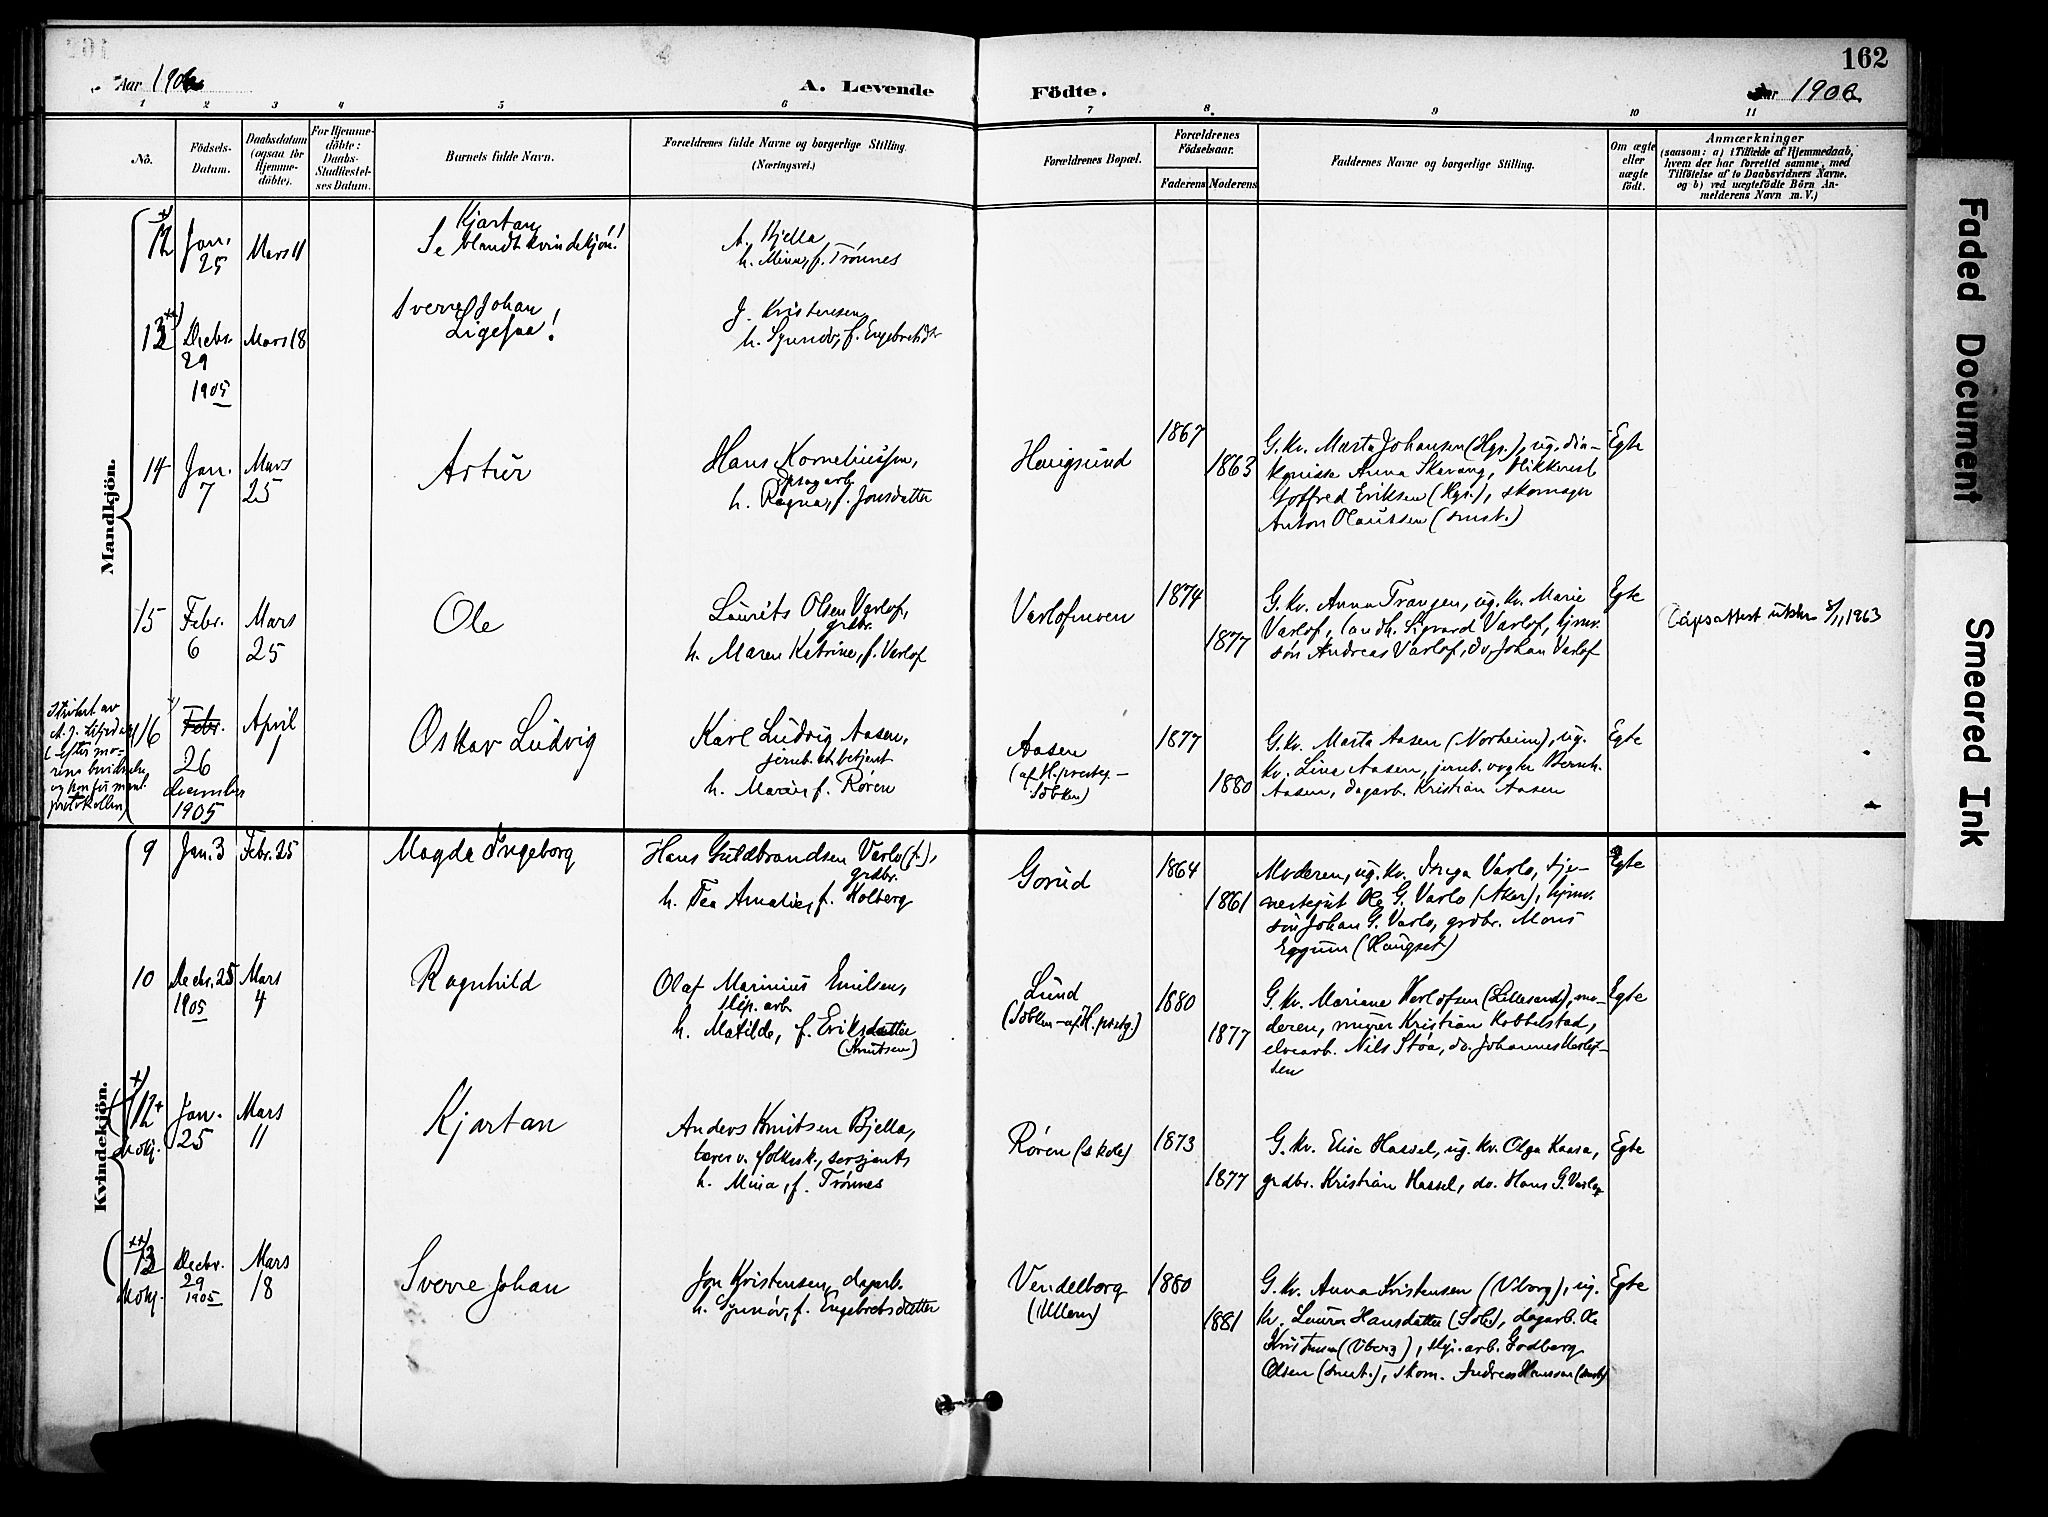 162
Aar 1906
A. Levende
Födte.
Aar 1906
1
2
3
4
5
6
7
8.
9
10
11
No.
Födsels-
Datum.
Daabsdatum
(ogsaa for
Hjemme-
döbte).
For Hjemme-
döbte:
Daabs-
Stadfæstel-
ses Datum.
Barnets fulde Navn.
Forældrenes fulde Navne og borgerlige Stilling.
(Næringsvei.)
Forældrenes Bopæl.
Forældrenes
Födselsaar.
Faderens
Moderens
Faddernes Navne og borgerlige Stilling.
Om ægte
eller
uægte
födt.
Anmærkninger
(saasom: a) i Tilfælde af Hjemmedaab,
hvem der har forrettet samme, med
Tilföielse af to Daabsvidners Navne.
og b) ved uægtefödte Börn An-
melderens Navn m. V.)
Mandkjön.
+)
12
Jan.
25
Mars 11
Kjartan
Se blandt kvindekjön!
A. Bjella
h. Mina, f. Trønnes
13
Decbr.
29
1905
Mars 18
Sverre Johan
Ligesaa!
J. Kristensen
h. Synnöv, f. Engebretsdtr
14
Jan.
7
Mars
25
Artur
Hans Korneliussen,
h. Ragna, f. Jonsdatter
Haugsund
1867
1863
G. kv. Marta Johansen (Hgs.), ug. dia-
konisse Anna Skavang,
Gotfred Eriksen (Hgs.), skomager
Anton Olaussen (smst.)
Egte
15
Febr.
6
Mars
25
Ole
Laurits Olsen Varlof,
grdbr.
h. Maren Katrine, f. Varlof
Varlofmoen
1874
1877
G. kv. Anna Trangen, ug. kv. Marie
Varlof, landh. Sigvard Varlof, hjmv.
søn Andreas Varlof, do Johan Varlof
Egte
8/11 1963
16
Febr.
26
december
1905
April
1
Oskar Ludvig
Karl Ludvig Aasen,
jernb. betjent
h. Marie, f. Røren
Aasen
(af H. prestg.-
Sokken)
1877
1880
G. kv. Marta Aasen (Norheim), ug.
kv. Lina Aasen, jernb. vogter Bernh.
Aasen, dagarb. Kristian Aasen
Egte
Kvindekjön.
9
Jan. 3
Febr. 25
Magda Ingeborg
Hans Guldbrandsen Varlo(f.),
grdbr.
h. Tea Amalie, f. Holberg
Gorud
1864
1861
Moderen, ug. kv. Inga Varlo, tje-
nestegut Ole G. Varlo (Aker), hjmv.
søn Johan G. Varlo, grdbr. Mons
Eggum (Haugset)
Egte
10
Decbr. 25
1905
Mars
4
Ragnhild
Olaf Marinius Emilsen,
slip. arb
h. Matilde, f. Eriksdatter
(Knutsen)
Lund
(Sokken - af H. prestg.)
1880
1877
G. kv. Mariane Herlofsen (Lillesand), mo-
deren, murer Kristian Kobbelstad,
elvearb. Nils Støa, do. Johannes Herlof-
sen
Egte
+)
12
Mdkj.
Jan.
25
Mars
11
Kjartan
Anders Knutsen Bjella,
lærer v. folkesk., sersjent,
h. Mina, f. Trønnes
Røren (skole)
1873
1877
G. kv. Elise Hassel, ug. kv. Olga Kaasa,
grdbr. Kristian Hassel, do. Hans G. Varlo
Egte
++)
13
Mdkj.
Decbr.
29
1905
Mars
18
Sverre Johan
Jon Kristensen, dagarb.
h. Synnöv, f. Engebretsdatter
Vendelborg
(Ullern)
1880
1881
G. kv. Anna Kristensen (Viborg), ug.
kv. Laura Hansdatter, dagarb. Ole
Kristensen (Viborg), arb. Godberg
Olsen (smst.), skom. Andreas
Egte
Faded Document
Smeared Ink